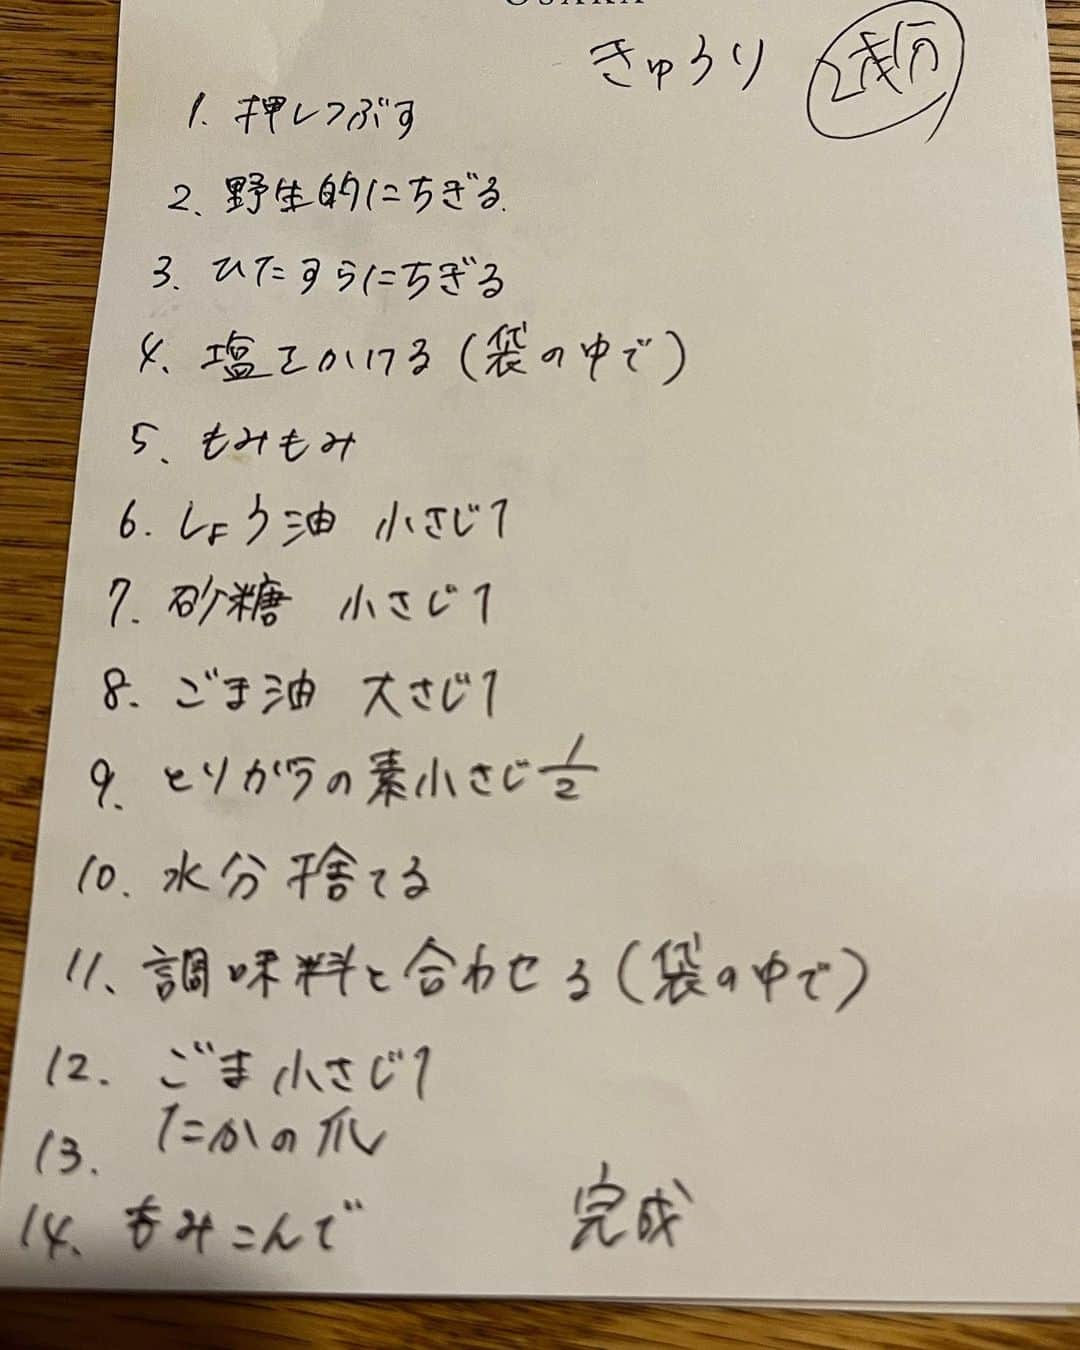 OSAKA
きゅうり 2本分
1. 押しつぶす
2. 野生的にちぎる.
3. ひたすらにちぎる
4. 塩をかける(袋の中で)
5. もみもみ
6. しょう油 小さじ1
7. 砂糖 小さじ1
8. ごま油 大さじ1
9. とりガラの素小さじ1/2
10. 水分捨てる
11. 調味料と合わせる(袋の中で)
12. ごま小さじ1
13. たかの爪
14. もみこんで 完成